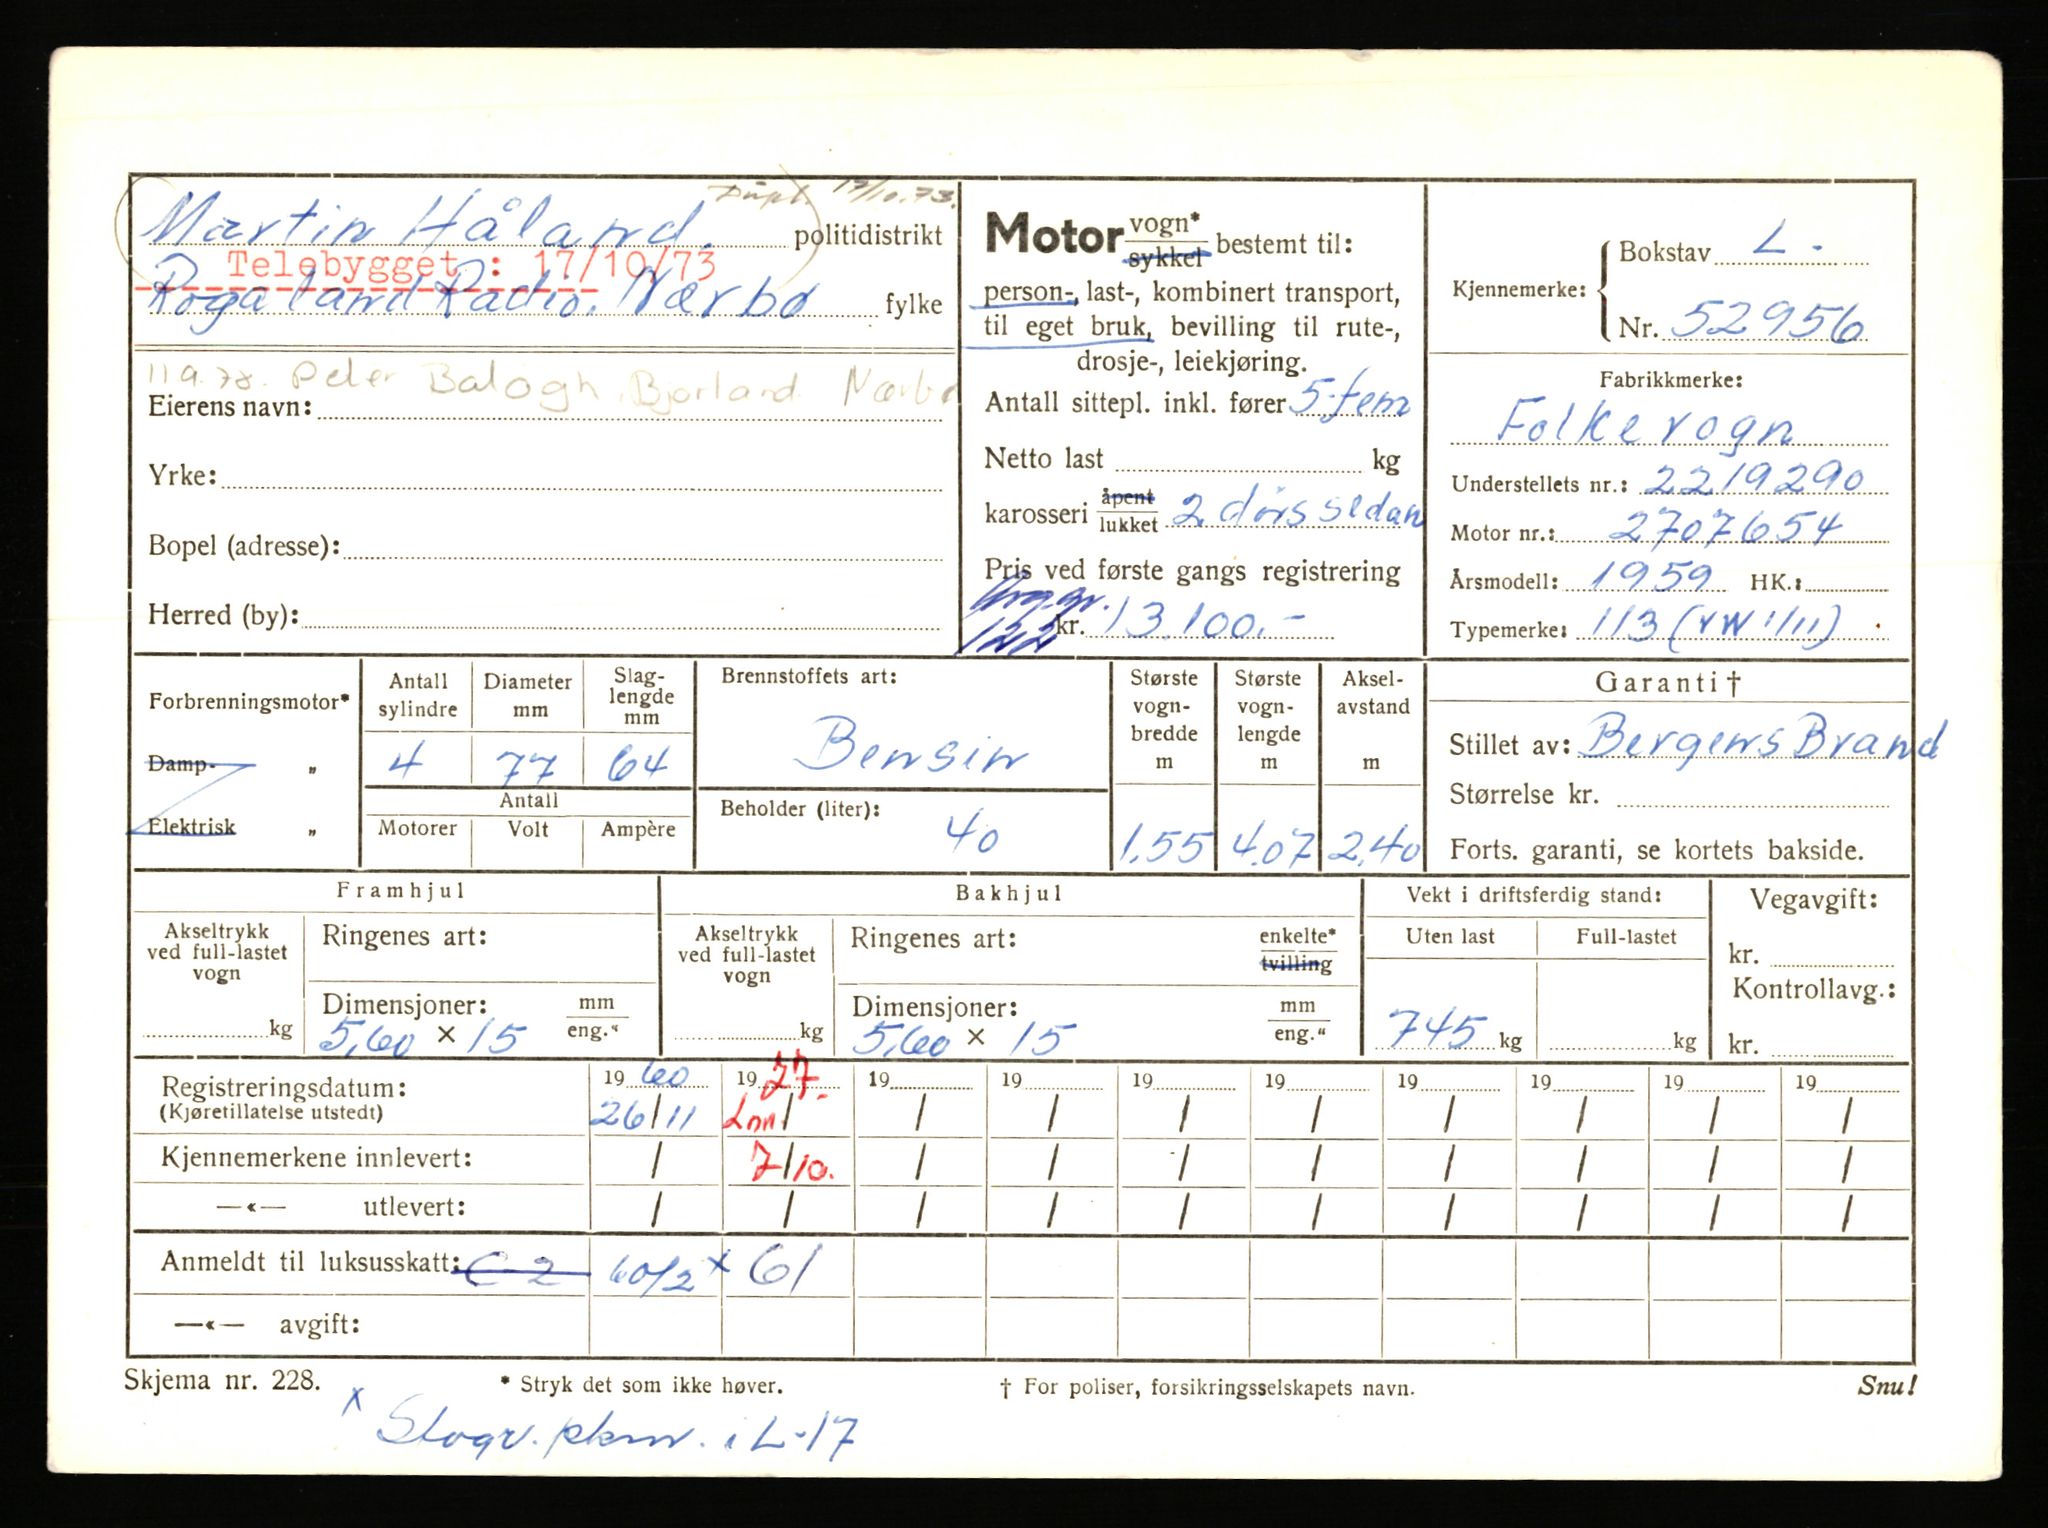 Dupl. 17/10.73.
Martin Håland. politidistrikt
Telebygget : 17/10/73
Rogaland Radio, Nærbø fylke
11.9.78. Peter Balogh, Bjorland. Nærbø
Eierens navn:
Yrke:
Bopel (adresse):
Herred (by):
Motor vogn* sykkel bestemt til:
person-, last-, kombinert transport,
til eget bruk, bevilling til rute-,
drosje-, leiekjøring.
Antall sittepl. inkl. fører 5-fem
Netto last kg
karosseri åpent lukket 2. dørs sedan
Pris ved første gangs registrering
122 kr. 13.100.-
Kjennemerke: Bokstav L.
Nr. 52956
Fabrikkmerke:
Folkevogn
Understellets nr.: 2219290
Motor nr.: 2707654
Årsmodell: 1959 HK.:
Typemerke: 113 (VW 1/11)
Forbrenningsmotor*
Damp- „
Elektrisk „
Antall sylindre Diameter mm Slag-lengde mm
4 77 64
Antall
Motorer Volt Ampère
Brennstoffets art:
Bensin
Beholder (liter):
40
Største vogn-bredde m Største vogn-lengde m Aksel-avstand m
1.55 4.07 2.40
Garanti †
Stillet av: Bergens Brand
Størrelse kr.
Forts. garanti, se kortets bakside.
Framhjul Bakhjul Vekt i driftsferdig stand: Vegavgift:
Akseltrykk ved full-lastet vogn kg
Ringenes art:
Dimensjoner: mm eng."
5,60 × 15
Akseltrykk ved full-lastet vogn kg
Ringenes art: enkelte* tvilling
Dimensjoner: mm eng."
5,60 × 15
Uten last Full-lastet
745 kg kg
kr.
Kontrollavg.:
kr.
Registreringsdatum: 19 60 19 77. 19 19 19 19 19 19 19 19
(Kjøretillatelse utstedt) 26/11 / / / / / / / / /
Kjennemerkene innlevert: / 7/10. / / / / / / / /
—«— utlevert: / / / / / / / / / /
Anmeldt til luksusskatt: C 2 60/2 x 61
—«— avgift:
Skjema nr. 228. * Stryk det som ikke høver. † For poliser, forsikringsselskapets navn. Snu!
x i L-17